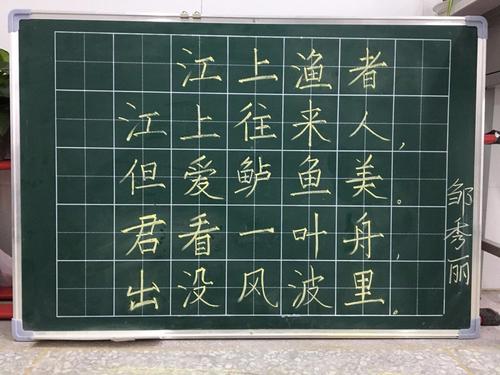 江上渔者
江上往来人,
但爱鲈鱼美。
君看一叶舟,
出没风波里。
邹秀丽